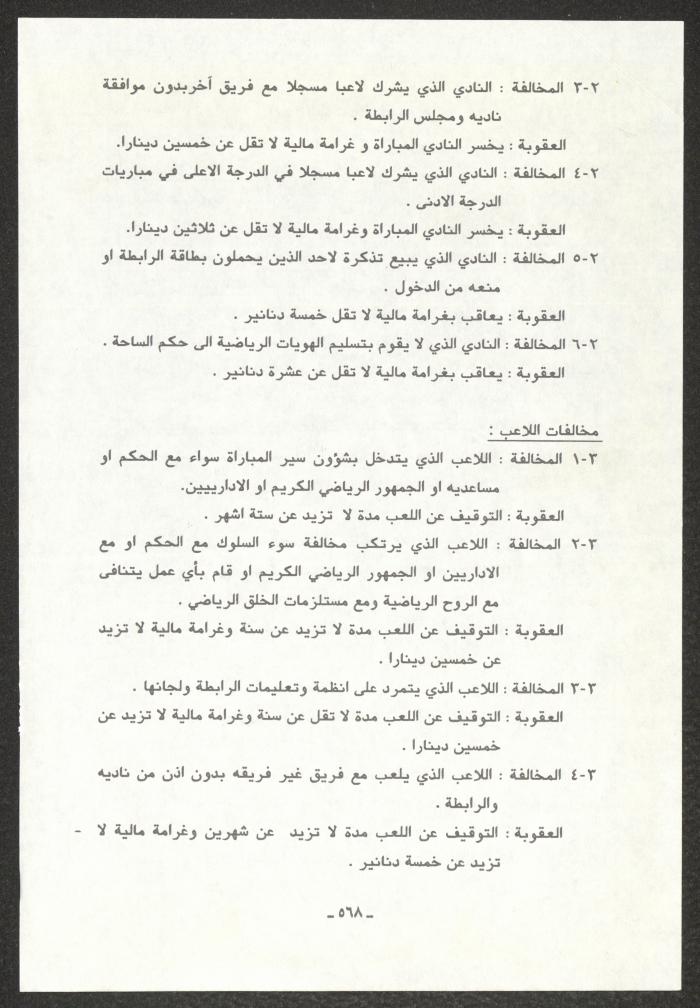 ٢-٣ المخالفة : النادي الذي يشرك لاعبا مسجلا مع فريق أخربدون موافقة
ناديه ومجلس الرابطة .
العقوبة : يخسر النادي المباراة و غرامة مالية لا تقل عن خمسين دينارا.
٢-٤ المخالفة : النادي الذي يشرك لاعبا مسجلا في الدرجة الاعلى في مباريات
الدرجة الادنى .
العقوبة : يخسر النادي المباراة وغرامة مالية لا تقل عن ثلاثين دينارا.
٢-٥ المخالفة : النادي الذي يبيع تذكرة لاحد الذين يحملون بطاقة الرابطة او
منعه من الدخول .
العقوبة : يعاقب بغرامة مالية لا تقل خمسة دنانير .
٢-٦ المخالفة : النادي الذي لا يقوم بتسليم الهويات الرياضية الى حكم الساحة .
العقوبة : يعاقب بغرامة مالية لا تقل عن عشرة دنانير .
مخالفات اللاعب :
٣-١ المخالفة : اللاعب الذي يتدخل بشؤون سير المباراة سواء مع الحكم او
مساعديه او الجمهور الرياضي الكريم او الاداريين.
العقوبة : التوقيف عن اللعب مدة لا تزيد عن ستة اشهر .
٣-٢ المخالفة : اللاعب الذي يرتكب مخالفة سوء السلوك مع الحكم او مع
الاداريين او الجمهور الرياضي الكريم او قام بأي عمل يتنافى
مع الروح الرياضية ومع مستلزمات الخلق الرياضي .
العقوبة : التوقيف عن اللعب مدة لا تزيد عن سنة وغرامة مالية لا تزيد
عن خمسين دينارا .
٣-٣ المخالفة : اللاعب الذي يتمرد على انظمة وتعليمات الرابطة ولجانها .
العقوبة : التوقيف عن اللعب مدة لا تقل عن سنة وغرامة مالية لا تزيد عن
خمسين دينارا .
٣-٤ المخالفة : اللاعب الذي يلعب مع فريق غير فريقه بدون اذن من ناديه
والرابطة .
العقوبة : التوقيف عن اللعب مدة لا تزيد عن شهرين وغرامة مالية لا -
تزيد عن خمسة دنانير .
ـ ٥٦٨ ـ